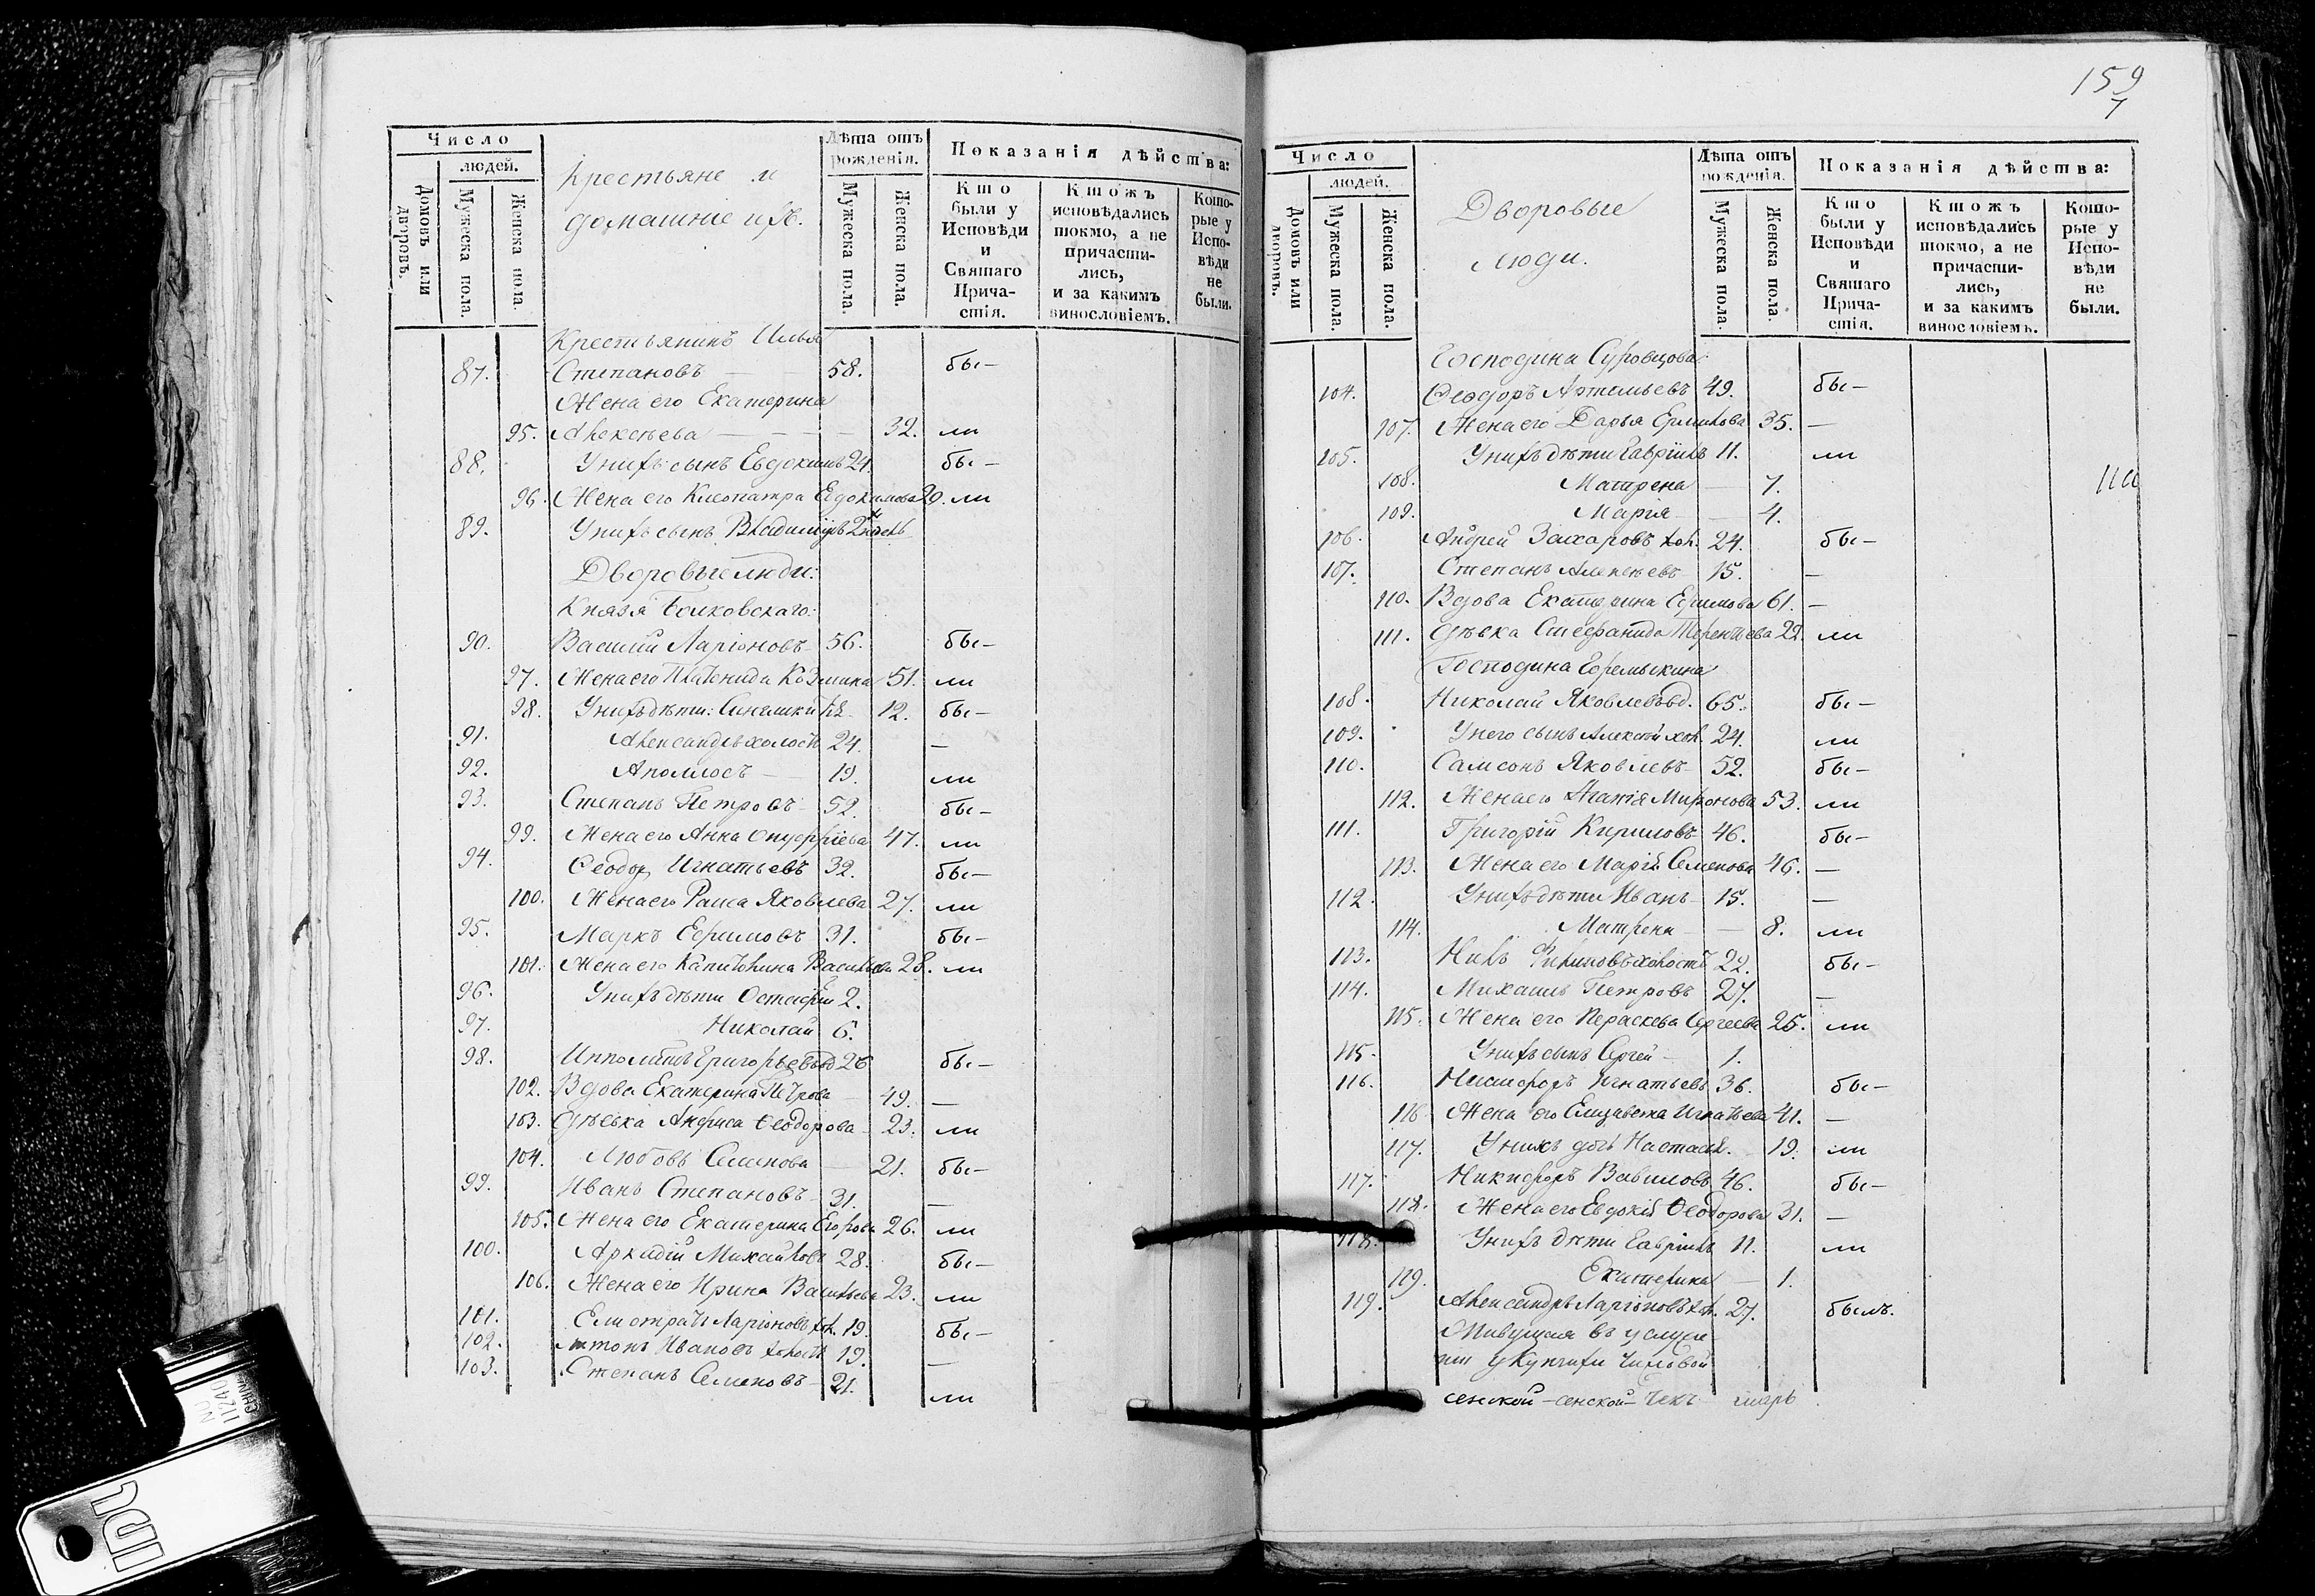 Число
людей.
Домовъ или дворовъ.
Мужеска пола.
Женска пола.
Крестьяне и
домашніе ихъ.
Лѣта отъ рожденія.
Мужеска пола.
Женска пола.
Показанія дѣйства:
Кто были у Исповѣди и Святаго Причастія.
Ктожъ исповѣдались токмо, а не причастились, и за какимъ винословіемъ.
Которые у Исповѣди не были.
Крестьянинъ Илья
87. Степановъ — 58. бы—
Жена его Екатерина
95. Алексѣева — 32. ли
88. У нихъ сынъ Евдокимъ 24. бы—
96. Жена его Клеопатра Евдокимова 20. ли
89. У нихъ сынъ Владиміръ 2
Дворовые люди:
Князя
90. Василій Ларіоновъ 56. бы—
97. Жена его Платонида Козмина 51. ли
98. У нихъ дѣти: 12. бы—
91. Александръ холостъ 24. —
92. Аполлосъ — 19. ли
93. Степанъ Петровъ 52. бы—
99. Жена его Анна Онуфріева 47. ли
94. Ѳеодор Игнатьевъ 32. бы—
100. Жена его Раиса Яковлева 27. ли
95. Маркъ Ефимовъ 31. бы—
101. Жена его Капитолина Васильева 28. ли
96. У нихъ дѣти Остафій 2.
97. Николай 6.
98. Ипполитъ Григорьевъ 26 бы—
102. Вдова Екатерина Петрова 49. —
103. Дѣвка Анфиса Ѳеодорова 23. ли
104. Любовь Семенова 21. бы—
99. Иванъ Степановъ 31. —
105. Жена его Екатерина Егорова 26. ли
100. Аркадій Михайловъ 28. бы—
106. Жена его Ирина Васильева 23. ли
101. Ларіоновъ хол. 19. бы—
102. Антонъ Ивановъ холостъ 19. —
103. Степанъ Семеновъ 21. ли
159
7
Число
людей.
Домовъ или дворовъ.
Мужеска пола.
Женска пола.
Дворовые
люди.
Лѣта отъ рожденія.
Мужеска пола.
Женска пола.
Показанія дѣйства:
Кто были у Исповѣди и Святаго Причастія.
Ктожъ исповѣдались токмо, а не причастились, и за какимъ винословіемъ.
Которые у Исповѣди не были.
Господина Суровцова
104. Ѳеодоръ Артемьевъ 49. бы—
107. Жена его Дарья Ермилова 35. —
105. У нихъ дѣти Гавріилъ 11. ли
108. Матрена — 7.
109. Марья — 4.
106. Андрей Захаровъ хол. 24. бы—
107. Степанъ Алексѣевъ 15. —
110. Вдова Екатерина Ефимова 61. —
111. Дѣвка Стефанида Терентьева 22. ли
Господина Горемыкина
108. Николай Яковлевъ вд. 65. бы—
109. У него сынъ Алексѣй хол. 24. ли
110. Самсонъ Яковлевъ 52. бы—
112. Жена его Агафія Миронова 53. ли
111. Григорій Кириловъ 46. бы—
113. Жена его Марія Семенова 46. —
112. У нихъ дѣти Иванъ 15. —
114. Матрена — 8. ли
113. Нилъ холостъ 22. бы—
114. Михаилъ Петровъ 27. —
115. Жена его Параскева Сергеева 25. ли
115. У нихъ сынъ Сергей 1.
116. Никифоръ Игнатьевъ 36. бы—
116. Жена его Елизавета Игнатьева 41. —
117. У нихъ дочь Настасья. 19. ли
117. Никифоръ Вавиловъ 46. бы—
118. Жена его Евдокія Ѳеодорова 31. —
118. У нихъ дѣти Гавріилъ 11. ли
119. Екатерина — 1.
119. Александръ Ларіоновъ хол. 27. былъ.
Живущая въ услуже
ніи у Купчихи